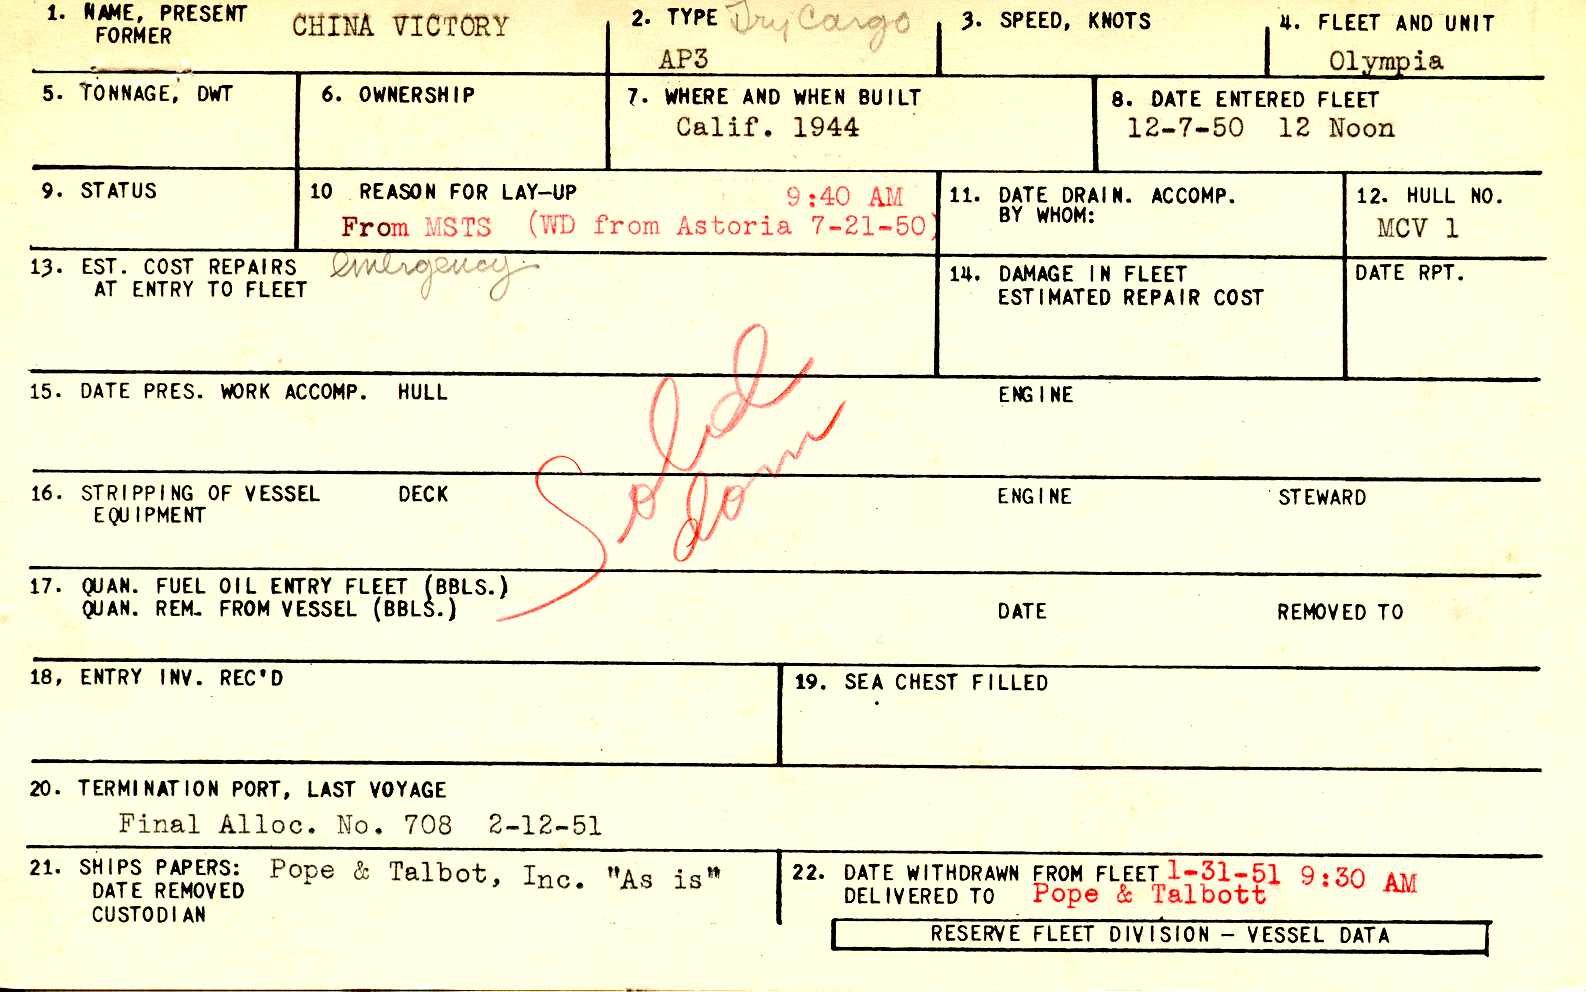 1. NAME, PRESENT CHINA VICTORY
FORMER
2. TYPE Dry Cargo
AP3
3. SPEED, KNOTS
4. FLEET AND UNIT
Olympia
5. TONNAGE, DWT
6. OWNERSHIP
7. WHERE AND WHEN BUILT
Calif. 1944
8. DATE ENTERED FLEET
12-7-50 12 Noon
9. STATUS
10 REASON FOR LAY-UP 9:40 AM
From MSTS (WD from Astoria 7-21-50)
emergency
11. DATE DRAIN. ACCOMP.
BY WHOM:
12. HULL NO.
MCV 1
13. EST. COST REPAIRS
AT ENTRY TO FLEET
14. DAMAGE IN FLEET
ESTIMATED REPAIR COST
DATE RPT.
15. DATE PRES. WORK ACCOMP. HULL ENGINE
Sold
dom
16. STRIPPING OF VESSEL DECK ENGINE STEWARD
EQUIPMENT
17. QUAN. FUEL OIL ENTRY FLEET (BBLS.)
QUAN. REM. FROM VESSEL (BBLS.) DATE REMOVED TO
18, ENTRY INV. REC'D
19. SEA CHEST FILLED
20. TERMINATION PORT, LAST VOYAGE
Final Alloc. No. 708 2-12-51
21. SHIPS PAPERS: Pope & Talbot, Inc. "As is"
DATE REMOVED
CUSTODIAN
22. DATE WITHDRAWN FROM FLEET 1-31-51 9:30 AM
DELIVERED TO Pope & Talbott
RESERVE FLEET DIVISION - VESSEL DATA